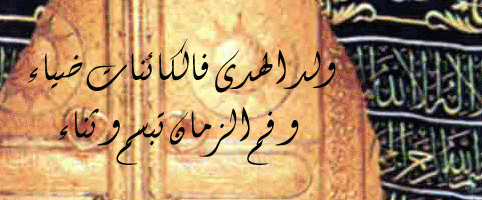 ولد الهدى فالكائنات ضياء
وفم الزمان تبسم وثناء
لا إله إلا الله